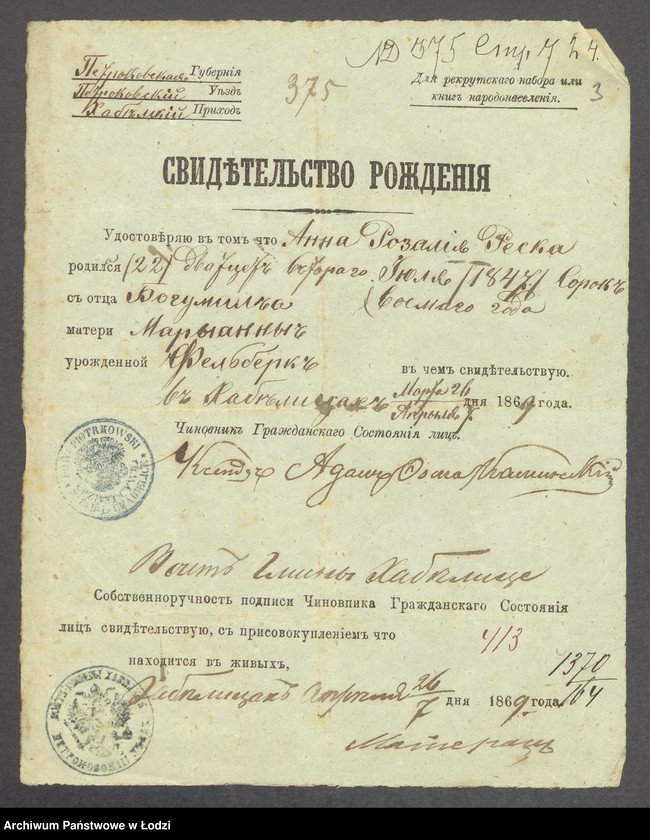 № 375 Стр. 7 24.
Петроковская Губернія
Петроковскій Уѣздъ
Приходъ
375
Для рекрутскаго набора или
книгъ народонаселенія.
3
СВИДѢТЕЛЬСТВО РОЖДЕНІЯ
Удостовѣряю въ томъ что Анна Розалія Феска
родился (22) Двадцать втораго Іюля (1847) Сорокъ
съ отца Богумила восьмаго года
матери Марыанны
урожденной Фельберкъ въ чемъ свидѣтельствую.
въ Марта 26
Апрѣля 7. дня 1869 года.
Чиновникъ Гражданскаго Состоянія лицъ.
Ксендзъ Адамъ
Войтъ Гмины
Собственноручность подписи Чиновника Гражданскаго Состоянія
лицъ свидѣтельствую, съ присовокупленіемъ что
413
находится въ живыхъ,
1370
164
26
7 дня 1869. года.
Archiwum Państwowe w Łodzi